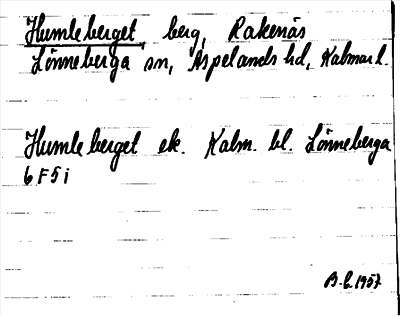 Humleberget, berg, Rakenäs
Lönneberga sn, Aspelands hd, Kalmar l.
Humleberget ek. Kalm. bl. Lönneberga
6 F 5 i
B.L. 1957